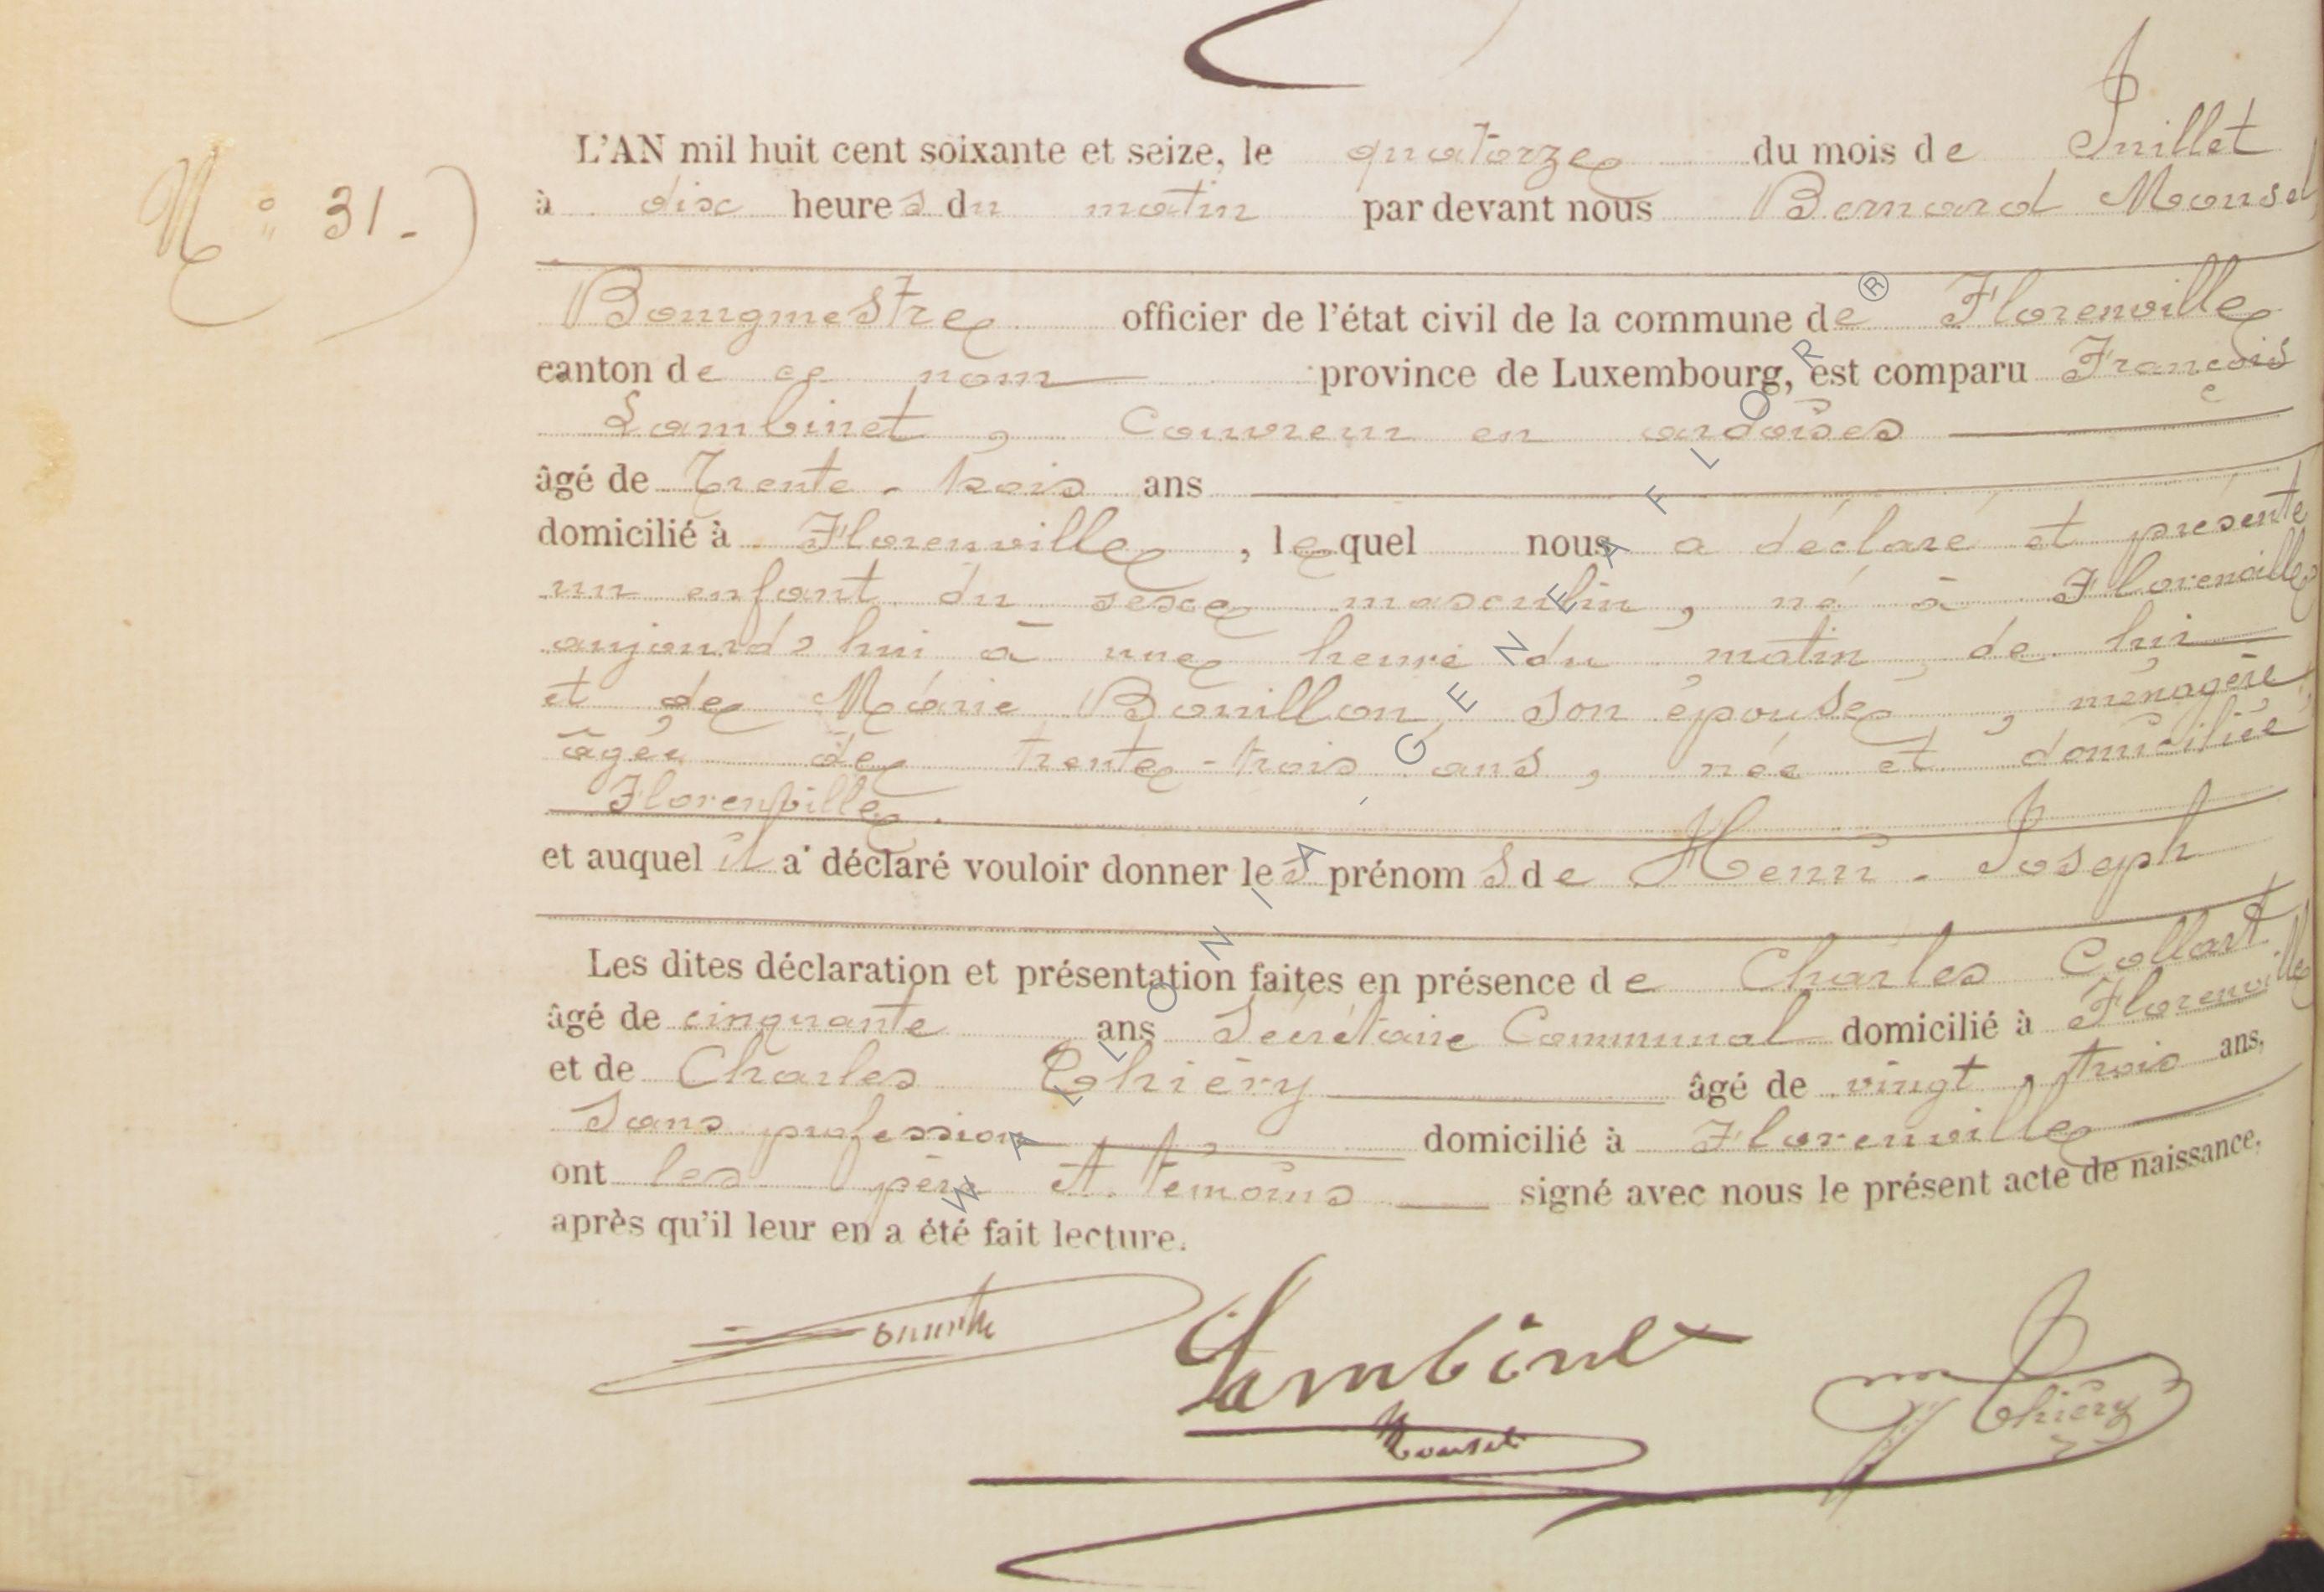 L'AN mil huit cent soixante et seize, le quatorze du mois de Juillet
N° 31.
à dix heures du matin par devant nous Bernard Mousel
Bourgmestre officier de l'état civil de la commune de Florenville
canton de ce nom province de Luxembourg, est comparu François
Lambinet, Couvreur en ardoises
âgé de Trente-trois ans
domicilié à Florenville, lequel nous a déclaré et présenté
un enfant du sexe masculin, né à Florenville
aujourd'hui à une heure du matin, de lui
et de Marie Bouillon, son épouse, ménagère
âgée de trente-trois ans, née et domiciliée
Florenville.
et auquel il a déclaré vouloir donner les prénoms de Henri-Joseph
Les dites déclaration et présentation faites en présence de Charles Collart
âgé de cinquante ans Secrétaire Communal domicilié à Florenville
et de Charles Thiéry âgé de vingt-trois ans,
Sans profession domicilié à Florenville
ont les père et témoins signé avec nous le présent acte de naissance,
après qu'il leur en a été fait lecture.
Lambinet
Thiéry
Mousel
WALLONIA - GENEAFLOR®